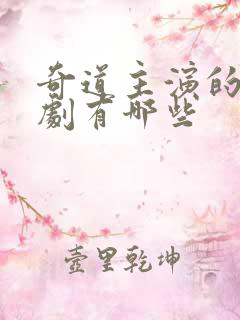 奇道主演的
劇有哪些
壺里乾坤